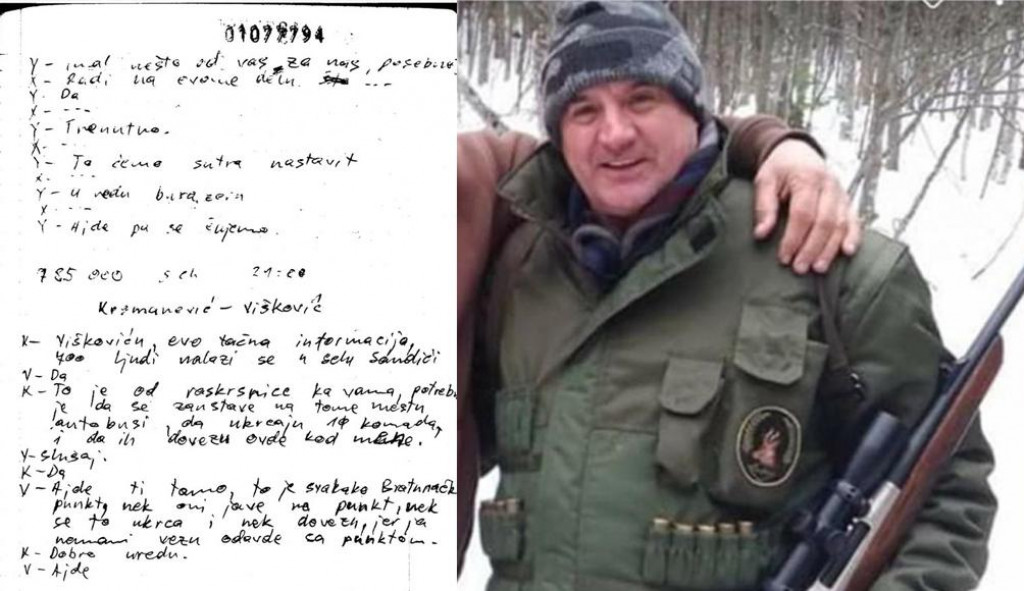 01077794
Y - imal nešto od vas za nas, posebno
X - Radi na evome delu ...
Y. Da
X. ---
Y - Trenutno.
X. ---
Y - To ćemo sutra nastavit
X. ---
Y - U redu burazeru
X ---
Y - Ajde pa se čujemo.
785 000 sch 21:20
Krsmanović - Višković
K - Viškoviću, evo tačna informacija,
400 ljudi nalazi se u selu Sandići
V - Da
K - To je od raskrsnice ka vama, potreb
je da se zaustave na tome mestu
autobusi, da ukrcaju 10 komada,
i da ih dovezu ovde kod mene.
V - Slušaj.
K - Da
V - Ajde ti tamo, to je svakako Bratunačk
punkt, nek oni jave na punkt, nek
se to ukrca i nek dovezu, jer ja
nemam vezu odavde sa punktom.
K - Dobro uredu.
V - Ajde